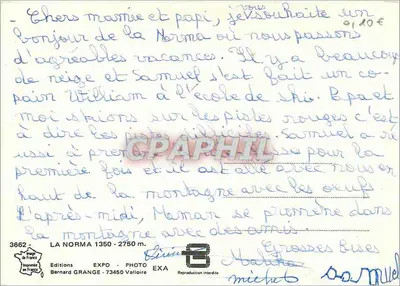 Chers mamie et papi, je vous souhaite un
0,10€
bonjour de la Norma où nous passons
d'agréables vacances. Il y a beaucoup
de neige et Samuel s'est fait un co-
pain William à l'école de ski. Papa et
moi skions sur des pistes rouges c'est
à dire les Samuel a ré-
ussi à pour la
première fois et il est allé avec nous en
haut de la montagne avec les oeufs
l'après-midi, Maman se promène dans
la montagne avec des amis.
CPARAMA
Grosses bises
3662 - LA NORMA 1350 - 2750 m.
Editions EXPO - PHOTO
Bernard GRANGE - 73450 Valloire
EXA
Reproduction interdite
michel
samuel